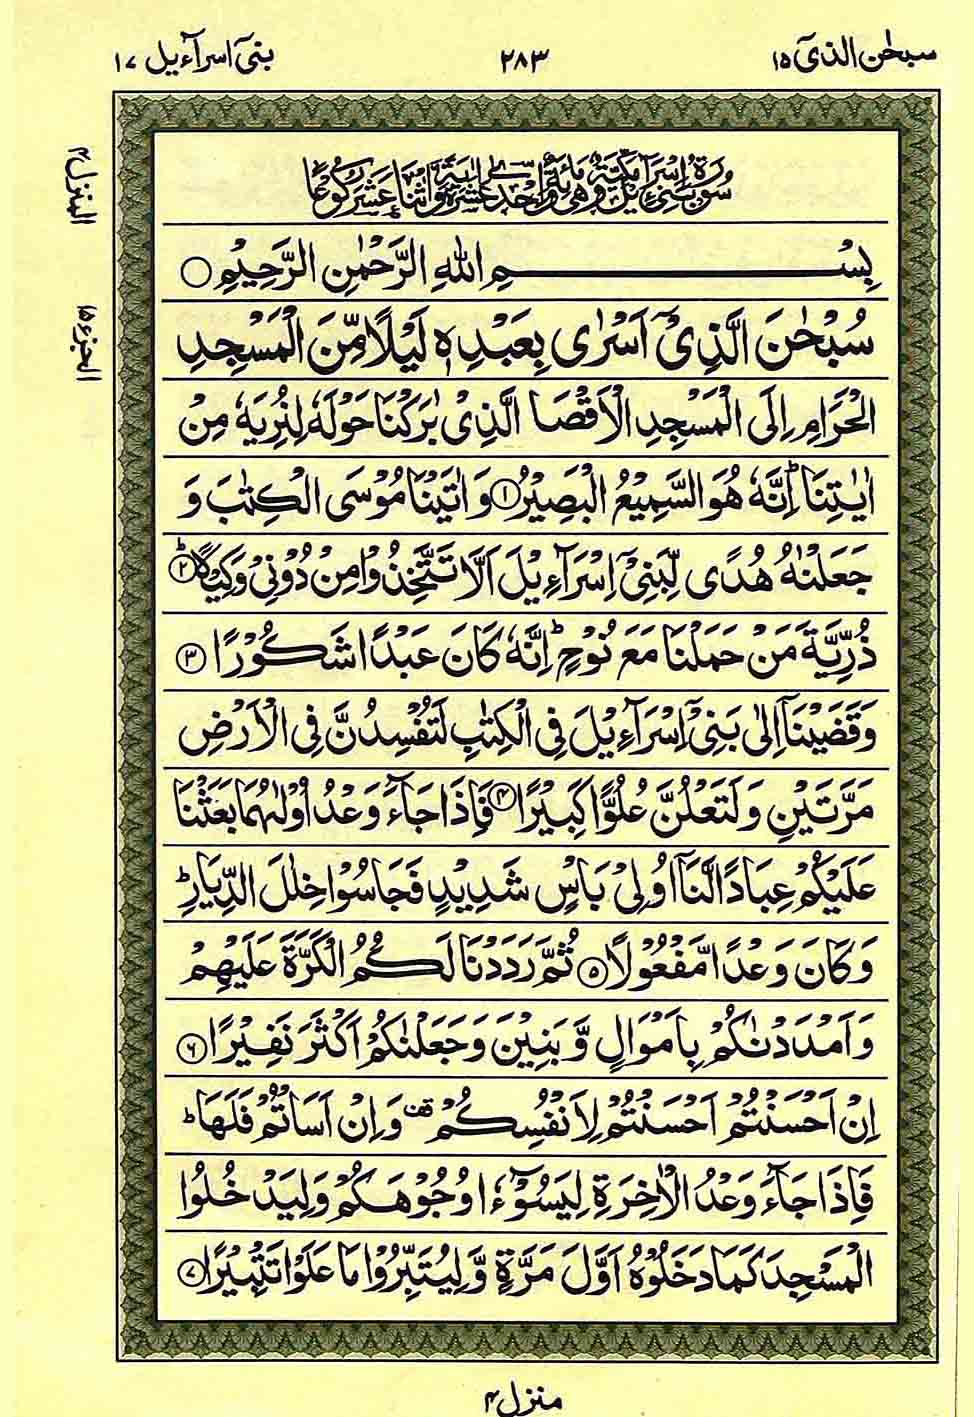 سبحٰن الذیٓ ۱۵
۲۸۳
بنیٓ اسرآءیل ۱۷
المنزل ۴
الجزء ۱۵
سُوْرَةُ بَنِيْٓ اِسْرَآءِيْلَ مَكِّيَّةٌ وَّهِيَ مِائَةٌ وَّاِحْدٰى عَشْرَةَ اٰيَةً وَّاثْنَا عَشَرَ رُكُوْعًا
بِسْمِ اللّٰهِ الرَّحْمٰنِ الرَّحِيْمِ ○
سُبْحٰنَ الَّذِيْٓ اَسْرٰى بِعَبْدِهٖ لَيْلًا مِّنَ الْمَسْجِدِ
الْحَرَامِ اِلَى الْمَسْجِدِ الْاَقْصَا الَّذِيْ بٰرَكْنَا حَوْلَهٗ لِنُرِيَهٗ مِنْ
اٰيٰتِنَا ؕ اِنَّهٗ هُوَ السَّمِيْعُ الْبَصِيْرُ ۱ وَ اٰتَيْنَا مُوْسَى الْكِتٰبَ وَ
جَعَلْنٰهُ هُدًى لِّبَنِيْٓ اِسْرَآءِيْلَ اَلَّا تَتَّخِذُوْا مِنْ دُوْنِيْ وَكِيْلًا ؕ ۲
ذُرِّيَّةَ مَنْ حَمَلْنَا مَعَ نُوْحٍ ؕ اِنَّهٗ كَانَ عَبْدًا شَكُوْرًا ۳
وَ قَضَيْنَآ اِلٰى بَنِيْٓ اِسْرَآءِيْلَ فِي الْكِتٰبِ لَتُفْسِدُنَّ فِي الْاَرْضِ
مَرَّتَيْنِ وَ لَتَعْلُنَّ عُلُوًّا كَبِيْرًا ۴ فَاِذَا جَآءَ وَعْدُ اُوْلٰىهُمَا بَعَثْنَا
عَلَيْكُمْ عِبَادًا لَّنَآ اُولِيْ بَاْسٍ شَدِيْدٍ فَجَاسُوْا خِلٰلَ الدِّيَارِ ؕ
وَ كَانَ وَعْدًا مَّفْعُوْلًا ۵ ثُمَّ رَدَدْنَا لَكُمُ الْكَرَّةَ عَلَيْهِمْ
وَ اَمْدَدْنٰكُمْ بِاَمْوَالٍ وَّ بَنِيْنَ وَ جَعَلْنٰكُمْ اَكْثَرَ نَفِيْرًا ۶
اِنْ اَحْسَنْتُمْ اَحْسَنْتُمْ لِاَنْفُسِكُمْ قف وَ اِنْ اَسَاْتُمْ فَلَهَا ؕ
فَاِذَا جَآءَ وَعْدُ الْاٰخِرَةِ لِيَسُوْٓءٗا وُجُوْهَكُمْ وَ لِيَدْخُلُوا
الْمَسْجِدَ كَمَا دَخَلُوْهُ اَوَّلَ مَرَّةٍ وَّ لِيُتَبِّرُوْا مَا عَلَوْا تَتْبِيْرًا ۷
منزل ۴